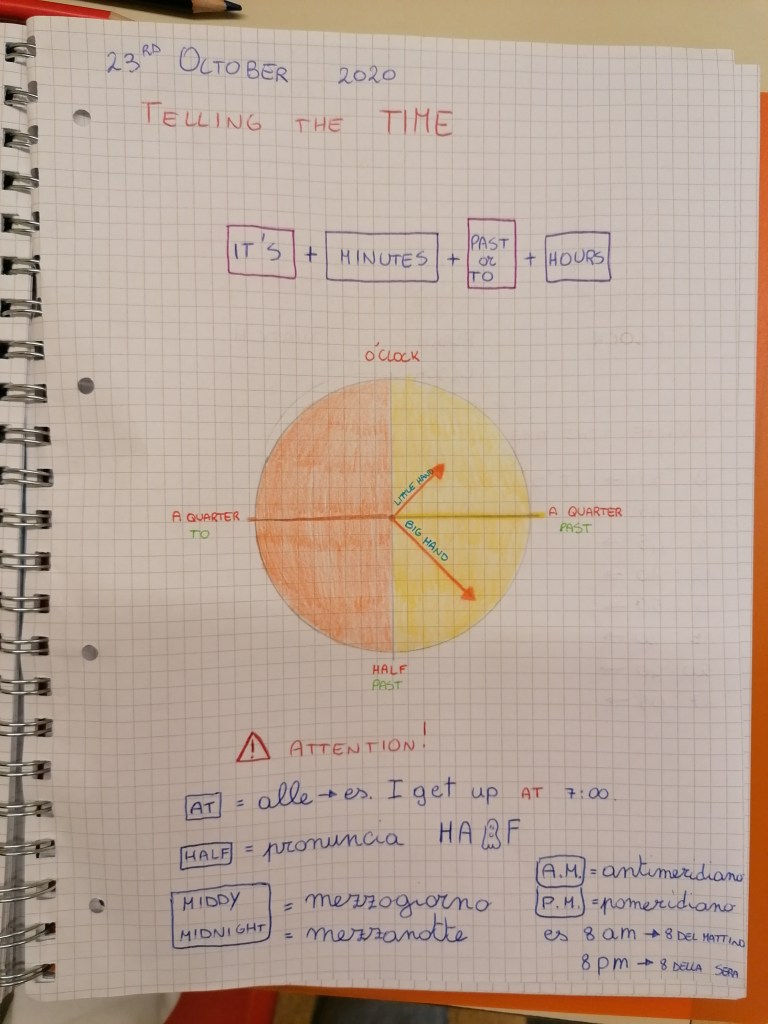 23RD OCTOBER 2020
TELLING THE TIME
IT'S + MINUTES + PAST or TO + HOURS
O'CLOCK
LITTLE HAND
A QUARTER TO
BIG HAND
A QUARTER PAST
HALF PAST
ATTENTION!
AT = alle → es. I get up AT 7:00.
HALF = pronuncia HALF
MIDDY = mezzogiorno
MIDNIGHT = mezzanotte
A.M. = antimeridiano
P.M. = pomeridiano
es 8 am → 8 DEL MATTINO
8 pm → 8 DELLA SERA